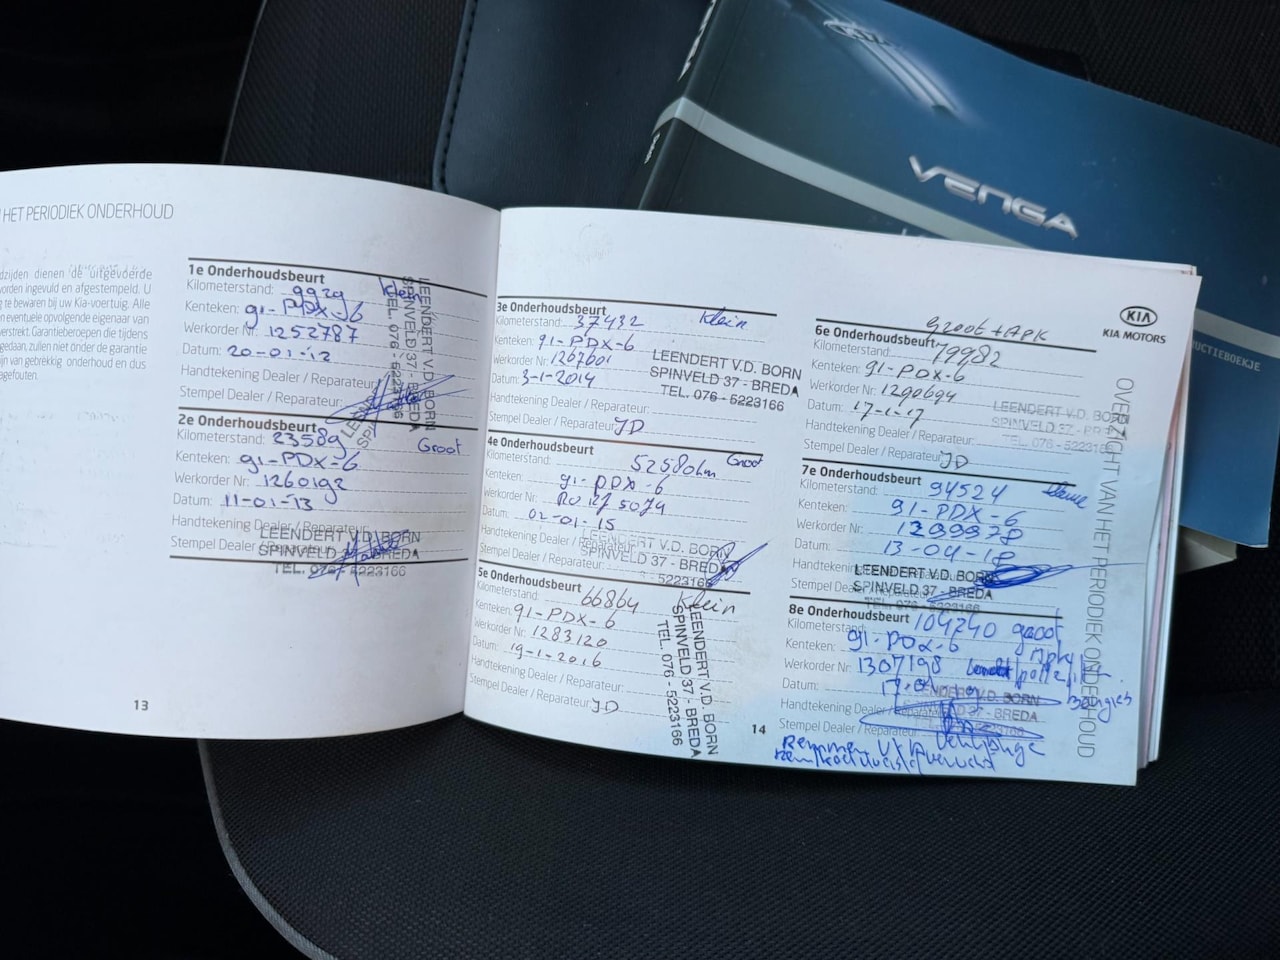 HET PERIODIEK ONDERHOUD
dzijden dienen de uitgevoerde
orden ingevuld en afgestempeld. U
te bewaren bij uw Kia-voertuig. Alle
en eventuele opvolgende eigenaar van
verstrekt. Garantieberoepen die tijdens
gedaan, zullen niet onder de garantie
ijn van gebrekkig onderhoud en dus
agefouten.
1e Onderhoudsbeurt
Kilometerstand: 9929 klein
Kenteken: 91-PDX-6
Werkorder Nr: 1252787
Datum: 20-01-12
Handtekening Dealer / Reparateur:
Stempel Dealer / Reparateur:
LEENDERT V.D. BORN
SPINVELD 37 - BREDA
TEL. 076 - 5223166
2e Onderhoudsbeurt
Kilometerstand: 23589 Groot
Kenteken: 91-PDX-6
Werkorder Nr: 1260192
Datum: 11-01-13
Handtekening Dealer / Reparateur:
Stempel Dealer / Reparateur:
LEENDERT V.D. BORN
SPINVELD 37 - BREDA
TEL. 076 - 5223166
13
3e Onderhoudsbeurt
Kilometerstand: 37432 Klein
Kenteken: 91-PDX-6
Werkorder Nr: 1267601
Datum: 3-1-2014
Handtekening Dealer / Reparateur:
Stempel Dealer / Reparateur: JD
LEENDERT V.D. BORN
SPINVELD 37 - BREDA
TEL. 076 - 5223166
4e Onderhoudsbeurt
Kilometerstand: 52580km Groot
Kenteken: 91-PDX-6
Werkorder Nr:
Datum: 02-01-15
Handtekening Dealer / Reparateur:
Stempel Dealer / Reparateur:
LEENDERT V.D. BORN
SPINVELD 37 - BREDA
5223166
5e Onderhoudsbeurt
Kilometerstand: 66864 Klein
Kenteken: 91-PDX-6
Werkorder Nr: 1283120
Datum: 19-1-2016
Handtekening Dealer / Reparateur:
Stempel Dealer / Reparateur: JD
LEENDERT V.D. BORN
SPINVELD 37 - BREDA
TEL. 076 - 5223166
14
Groot + APK
6e Onderhoudsbeurt
Kilometerstand: 79982
Kenteken: 91-PDX-6
Werkorder Nr: 1290694
Datum: 17-1-17
Handtekening Dealer / Reparateur:
Stempel Dealer / Reparateur: JD
LEENDERT V.D. BORN
SPINVELD 37 - BREDA
TEL. 076 - 5223166
7e Onderhoudsbeurt
Kilometerstand: 94524
Kenteken: 91-PDX-6
Werkorder Nr: 1299978
Datum: 13-04-18
Handtekening
Stempel Dealer
LEENDERT V.D. BORN
SPINVELD 37 - BREDA
TEL. 076 - 5223166
8e Onderhoudsbeurt
Kilometerstand: 104240 groot
Kenteken: 91-PDX-6 APK
Werkorder Nr: 1307198
Datum: bougies
Handtekening Dealer / Reparateur:
Stempel Dealer / Reparateur:
LEENDERT V.D. BORN
37 - BREDA
Remmen
KIA
KIA MOTORS
OVERZICHT VAN HET PERIODIEK ONDERHOUD
VENGA
UCTIEBOEKJE